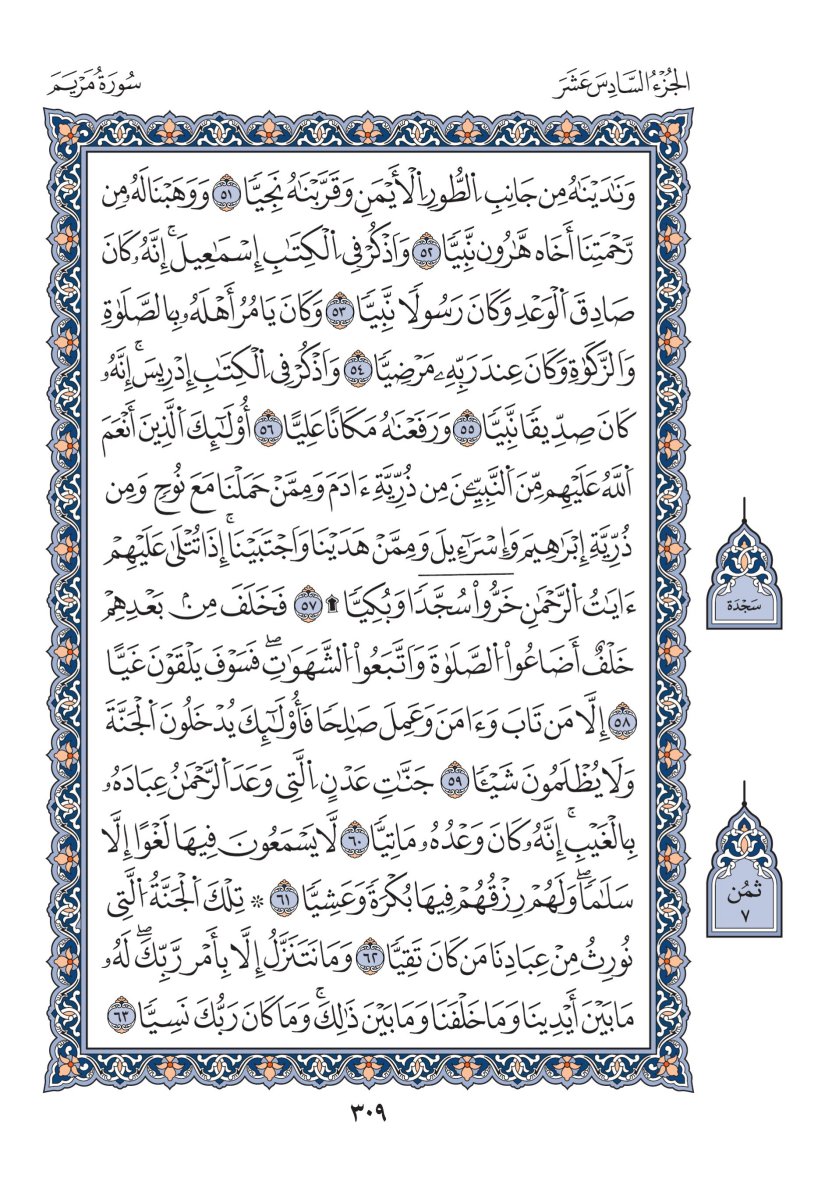 الجُزْءُ السَّادِسَ عَشَرَ
سُورَةُ مَرْيَمَ
وَنَٰدَيْنَٰهُ مِن جَانِبِ اِ۬لطُّورِ اِ۬لْأَيْمَنِ وَقَرَّبْنَٰهُ نَجِيّٗا ٥١ وَوَهَبْنَا لَهُۥ مِن
رَّحْمَتِنَا أَخَاه هَّٰرُون نَّبِيّٗا ٥٢ وَاَذْكُرْ فِي اِ۬لْكِتَٰبِ إِسْمَٰعِيلَۚ إِنَّهُۥ كَانَ
صَادِقَ اَ۬لْوَعْدِ وَكَانَ رَسُولٗا نَّبِيّٗا ٥٣ وَكَانَ يَامُرُ أَهْلَهُۥ بِالصَّلَوٰةِ
وَالزَّكَوٰةِ وَكَانَ عِندَ رَبِّهِۦ مَرْضِيّٗا ٥٤ وَاَذْكُرْ فِي اِ۬لْكِتَٰبِ إِدْرِيسَۚ إِنَّهُۥ
كَانَ صِدِّيقٗا نَّبِيّٗا ٥٥ وَرَفَعْنَٰهُ مَكَانًا عَلِيًّا ٥٦ أُوْلَٰٓئِكَ اَ۬لَّذِينَ أَنْعَمَ
اَ۬للَّهُ عَلَيْهِم مِّنَ اَ۬لنَّبِيِّـۧنَ مِن ذُرِّيَّةِ ءَادَمَ وَمِمَّنْ حَمَلْنَا مَعَ نُوحٖ وَمِن
ذُرِّيَّةِ إِبْرَٰهِيمَ وَإِسْرَٰٓءِيلَ وَمِمَّنْ هَدَيْنَا وَاَجْتَبَيْنَاۚ إِذَا تُتْلَىٰ عَلَيْهِمْ
ءَايَٰتُ اُ۬لرَّحْمَٰنِ خَرُّواْ سُجَّدٗا وَبُكِيّٗا۩ ٥٧ فَخَلَفَ مِنۢ بَعْدِهِمْ
خَلْفٌ أَضَاعُواْ اُ۬لصَّلَوٰةَ وَاَتَّبَعُواْ اُ۬لشَّهَوَٰتِۖ فَسَوْفَ يَلْقَوْنَ غَيًّا
٥٨ إِلَّا مَن تَابَ وَءَامَنَ وَعَمِلَ صَٰلِحٗا فَأُوْلَٰٓئِكَ يُدْخَلُونَ اَ۬لْجَنَّةَ
وَلَا يُظْلَمُونَ شَيْـٔٗا ٥٩ جَنَّٰتِ عَدْنٍ اِ۬لَّتِي وَعَدَ اَ۬لرَّحْمَٰنُ عِبَادَهُۥ
بِالْغَيْبِۚ إِنَّهُۥ كَانَ وَعْدُهُۥ مَاتِيّٗا ٦٠ لَّا يَسْمَعُونَ فِيهَا لَغْوًا إِلَّا
سَلَٰمٗاۖ وَلَهُمْ رِزْقُهُمْ فِيهَا بُكْرَةٗ وَعَشِيّٗا ٦١ ۞ تِلْكَ اَ۬لْجَنَّةُ اُ۬لَّتِي
نُورِثُ مِنْ عِبَادِنَا مَن كَانَ تَقِيّٗا ٦٢ وَمَا نَتَنَزَّلُ إِلَّا بِأَمْر رَّبِّكَۖ لَهُۥ
مَا بَيْنَ أَيْدِينَا وَمَا خَلْفَنَا وَمَا بَيْنَ ذَٰلِكَۚ وَمَا كَانَ رَبُّكَ نَسِيّٗا ٦٣
سَجْدَة
ثُمُن
٧
٣٠٩